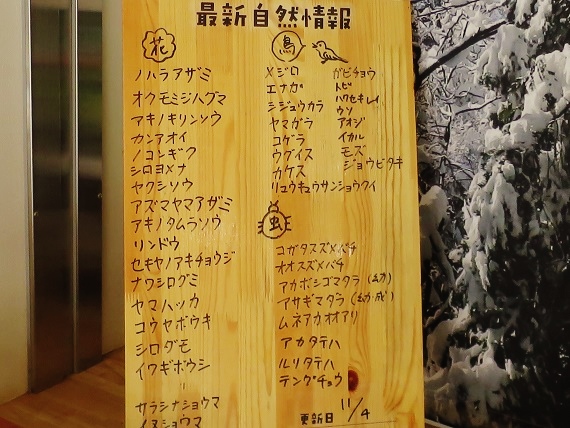 最新自然情報
花
ノハラアザミ
オクモミジハグマ
アキノキリンソウ
カンアオイ
ノコンギク
シロヨメナ
ヤクシソウ
アズマヤマアザミ
アキノタムラソウ
リンドウ
セキヤノアキチョウジ
ナワシログミ
ヤマハッカ
コウヤボウキ
シロダモ
イワギボウシ
〃
サラシナショウマ
イヌショウマ
鳥
メジロ
エナガ
シジュウカラ
ヤマガラ
コゲラ
ウグイス
カケス
リュウキュウサンショウクイ
ガビチョウ
トビ
ハクセキレイ
ウソ
アオジ
イカル
モズ
ジョウビタキ
虫
コガタスズメバチ
オオスズメバチ
アカボシゴマダラ(幼)
アサギマダラ(幼・成)
ムネアカオオアリ
アカタテハ
ルリタテハ
テングチョウ
更新日 11/4